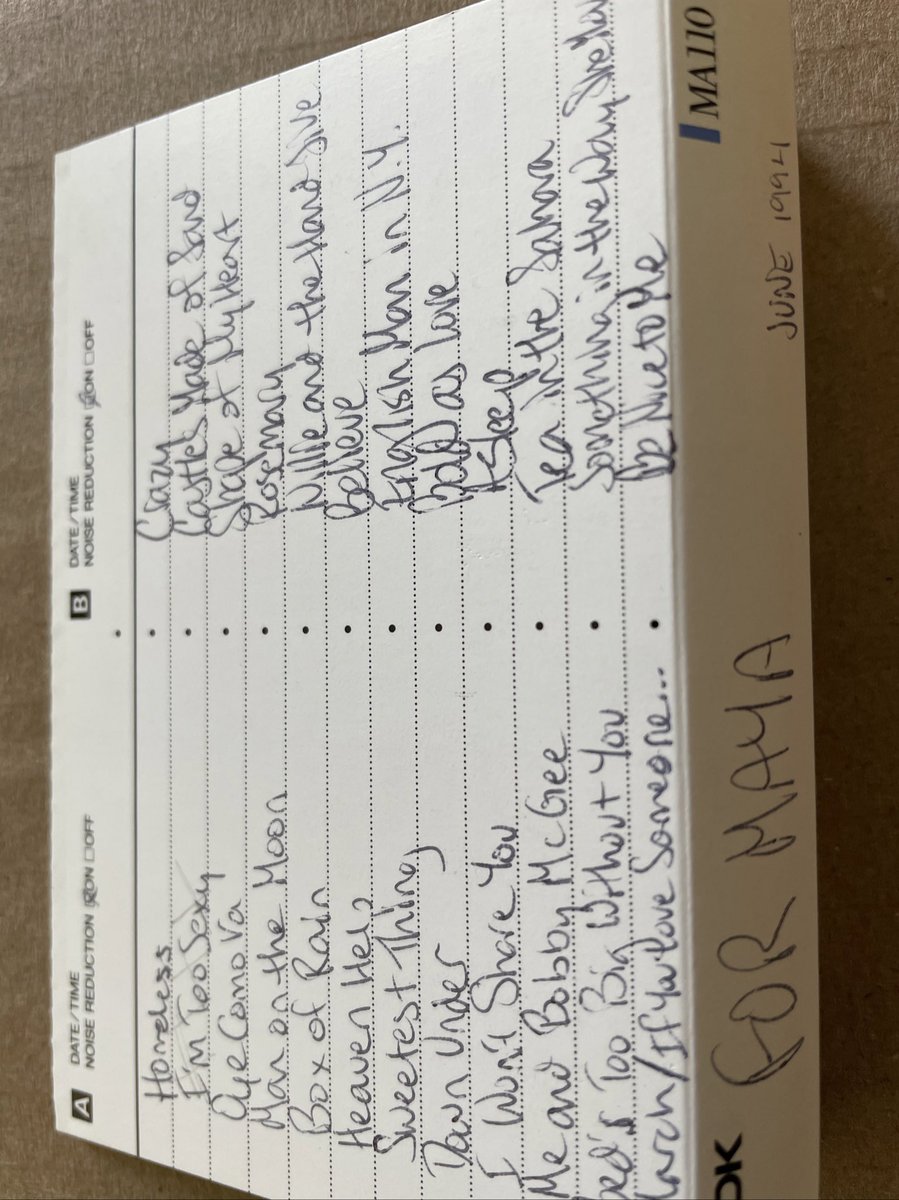 A DATE/TIME
NOISE REDUCTION ☒ON ☐OFF
Homeless
I'm Too Sexy
Oye Como Va
Man on the Moon
Box of Rain
Heaven Help
Sweetest Thing
Down Under
I Won't Share You
Me and Bobby McGee
Bed's Too Big Without You
/If You Love Someone...
B DATE/TIME
NOISE REDUCTION ☒ON ☐OFF
Crazy
Castles Made of Sand
Shape of My Heart
Rosemary
Willie and the Hand Jive
Believe
English Man in N.Y.
Bold as Love
Asleep
Tea in the Sahara
Something in the Way She
Be Nice to Me
DK FOR MAYA JUNE 1994 MA110